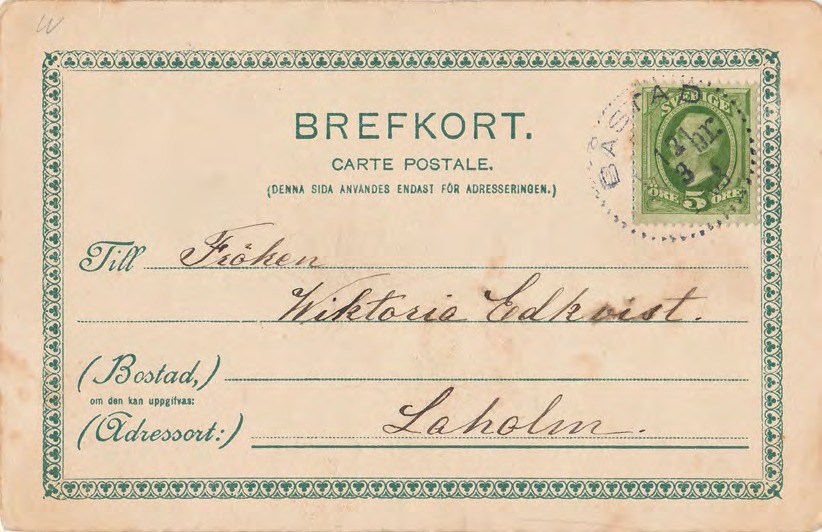 W
BREFKORT.
CARTE POSTALE.
(DENNA SIDA ANVÄNDES ENDAST FÖR ADRESSERINGEN.)
SVERIGE
ÖRE 5 ÖRE
BÅSTAD
Till Fröken
Wiktoria Edkvist.
(Bostad,)
om den kan uppgifvas:
(Adressort:) Laholm.